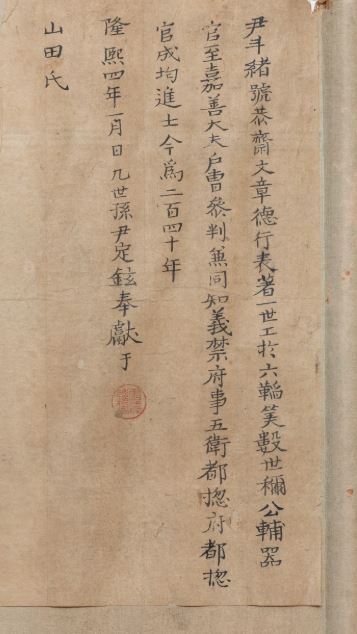 尹斗緒號恭齋文章德行表著一世工於六韜筭數世稱公輔器
官至嘉善大夫戶曹參判兼同知義禁府事五衛都摠府都摠
官成均進士今爲二百四十年
隆熙四年一月日九世孫尹定鉉奉獻于
山田氏